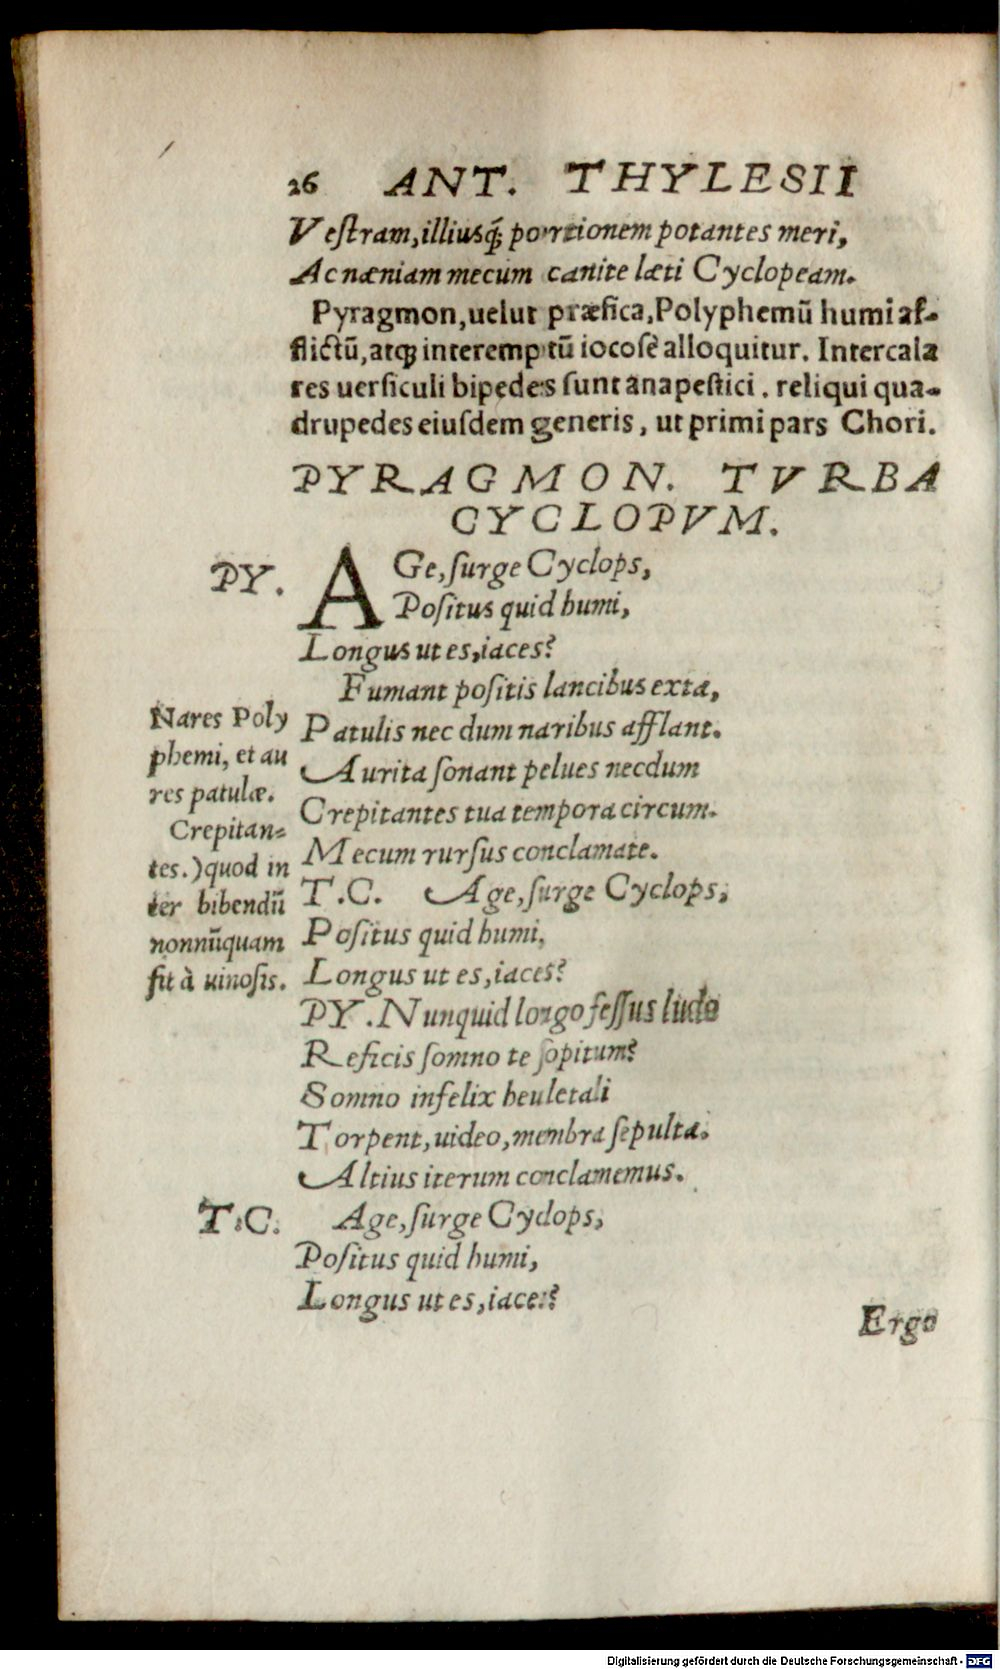 26 ANT. THYLESII
Vestram, illiusq́; portionem potantes meri,
Ac næniam mecum canite læti Cyclopeam.
Pyragmon, uelut præfica, Polyphemū humi af-
flictū, atq; interemptū iocosè alloquitur. Intercala
res uersiculi bipedes sunt anapestici. reliqui qua-
drupedes eiusdem generis, ut primi pars Chori.
PYRAGMON. TVRBA
CYCLOPVM.
PY. AGe, surge Cyclops,
Positus quid humi,
Longus ut es, iaces?
Fumant positis lancibus exta,
Patulis nec dum naribus afflant.
Aurita sonant pelues necdum
Crepitantes tua tempora circum.
Mecum rursus conclamate.
T.C. Age, surge Cyclops,
Positus quid humi,
Longus ut es, iaces?
PY. Nunquid longo fessus ludo
Reficis somno te sopitum?
Somno infelix heu letali
Torpent, uideo, membra sepulta.
Altius iterum conclamemus.
T.C. Age, surge Cyclops,
Positus quid humi,
Longus ut es, iaces?
Nares Poly
phemi, et au
res patulæ.
Crepitan=
tes.) quod in
ter bibendū
nonnūquam
fit à uinosis.
Ergo
Digitalisierung gefördert durch die Deutsche Forschungsgemeinschaft - DFG